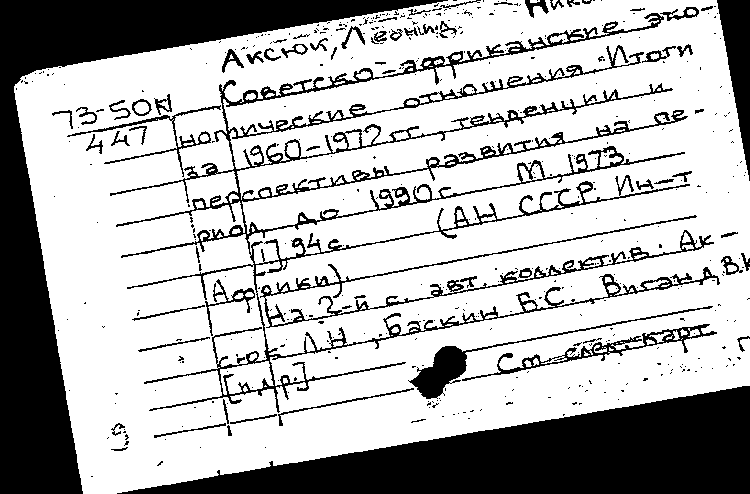 Аксюк, Леонид Нико
Советско-африканские эко-
73-50
447
номические отношения. Итоги
за 1960-1972 гг., тенденции и
перспективы развития на пе-
риод до 1990 г. М., 1973.
[1], 94 с. (АН СССР. Ин-т
Африки).
На 2-й с. авт. коллектив: Ак-
сюк Л.Н., Баскин В.С., Виганд В.К
[и др.].
См. след. карт.
9